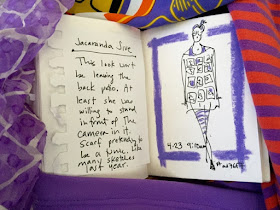 Jacaranda Sive
This look won't
be leaving the
back patio. At
least she was
willing to stand
in front of The
camera in it.
Scarf pretending to
be a tunic. Like
many sketches
last year.
4.23 9:12am